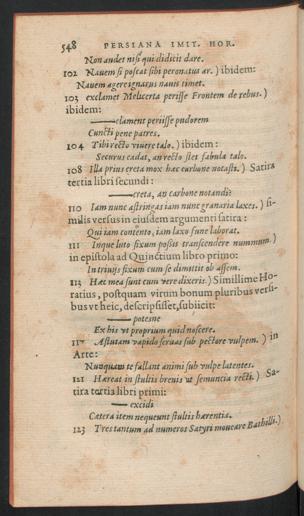 548 PERSIANA IMIT. HOR.
Non audet nisi qui didicit dare.
102 Nauem si poscat sibi peronatus ar.) ibidem:
Nauem agere ignarus nauis timet.
103 exclamet Melicerta perisse Frontem de rebus.)
ibidem:
—clament periisse pudorem
Cuncti pene patres.
104 Tibi recto viuere talo.) ibidem:
Securus cadat, an recto stet fabula talo.
108 Illa prius creta mox hæc carbone notasti.) Satira
tertia libri secundi:
—creta, an carbone notandi?
110 Iam nunc astringas iam nunc granaria laxes.) si-
milis versus in eiusdem argumenti satira:
Qui iam contento, iam laxo fune laborat.
111 Inque luto fixum possis transcendere nummum.)
in epistola ad Quinctium libro primo:
In triuijs fixum cum se dimittit ob assem.
113 Hæc mea sunt cum vere dixeris.) Simillime Ho-
ratius, postquam virum bonum pluribus versi-
bus vt heic, descripsisset, subiicit:
—potesne
Ex his vt proprium quid noscere.
Astutam vapido seruas sub pectore vulpem.) in
Arte:
Nunquam te fallant animi sub vulpe latentes.
121 Hæreat in stultis breuis vt semuncia recti.) Sa-
tira tertia libri primi:
—excidi
Cætera item nequeunt stultis hærentia.
123 Tres tantum ad numeros Satyri moueare Bathilli.)